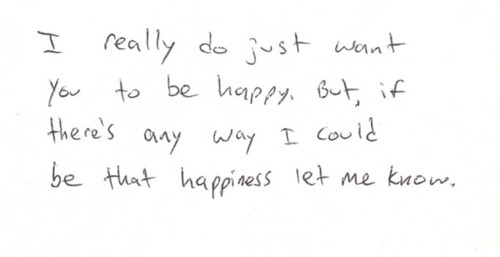 I really do just want
you to be happy. But, if
there's any way I could
be that happiness let me know.